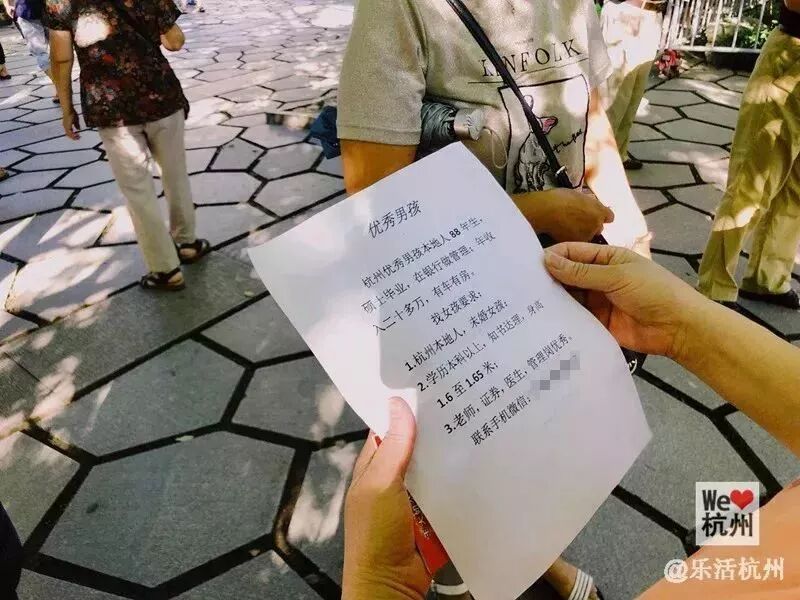 LINFOLK
优秀男孩
杭州优秀男孩本地人 88 年生，
硕士毕业，在银行做管理；年收
入二十多万，有车有房。
找女孩要求；
1.杭州本地人，未婚女孩；
2.学历本科以上，知书达理，身高
1.6 至 1.65 米，
3.老师，证券，医生，管理岗优秀。
联系手机微信：
We
杭州
@乐活杭州